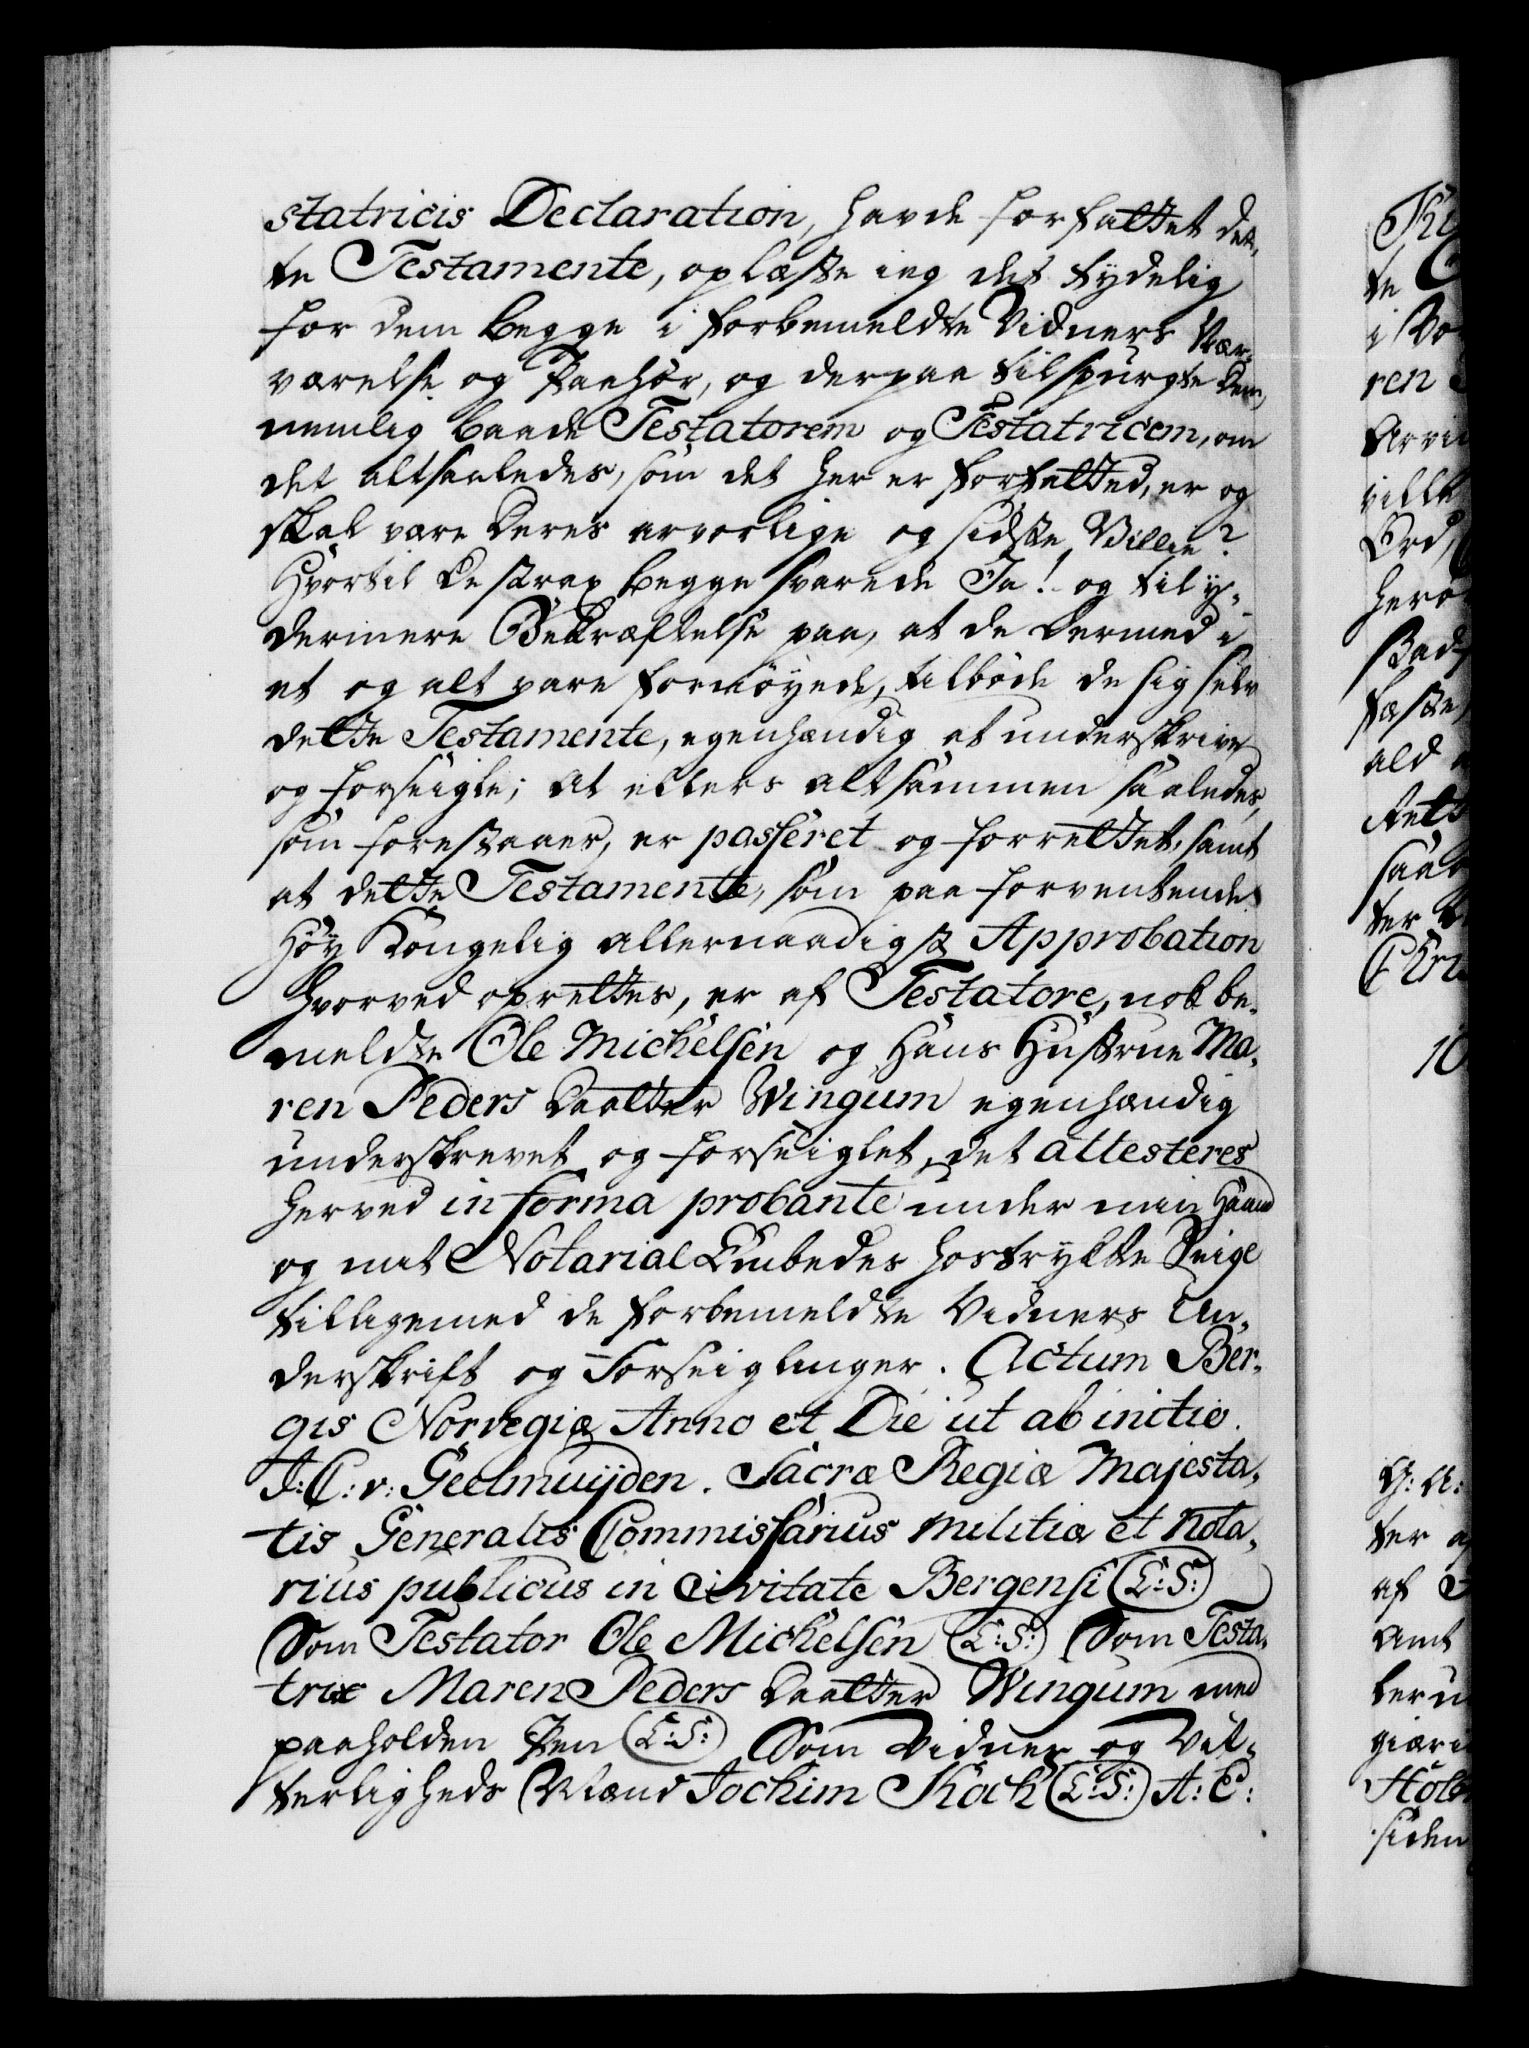 statricis Declaration, havde forfattet det,
te Testamente, oplæste ieg det tydelig
for dem begge i forbemeldte Vidners Nær-
værelse og Paahør, og derpaa tilspurgte Dem,
nemlig baade Testatorem og Testatricem, om
det altsaaledes, som det her er forfatted, er og
skal være deres alvorlige og sidste Villie?
Hvortil de strax begge svarede Ja! og til y-
dermere Bekræftelse paa, at de dermed i
et og alt vare fornøyede, tilbøde de sig selv
dette Testamente, egenhændig at underskrive
og forseigle; At ellers altsammen saaledes,
som forestaaer, er passeret og forrettet, samt
at dette Testamente, som paa forventende
Høy Kongelig allernaadigst Approbation
hvorved oprettes, er af Testatore, nok be-
meldte Ole Michelsen og Hans Hustrue Ma-
ren Peders Daatter Wingum egenhændig
underskrevet og forseiglet, det attesteres
herved in forma probante under min Haand
og mit Notarial Embedes hostrykte Seigl
tilligemed de forbemeldte Vidners Un-
derskrift og Forseiglinger. Actum Ber-
gis Norvegiæ Anno et Die ut ab initio.
J: C: v: Geelmuijden. Sacræ Regiæ Majesta-
tis Generalis Commissarius Militiæ et Nota-
rius publicus in Civitate Bergensi (L: S:)
Som Testator Ole Michelsen (L: S:) Som Testa-
trix Maren Peders Daatter Wingum med
paaholden Pen (L: S:) Som Vidner og Vit-
terligheds Mænd Jochim Koch (L: S:) A: C:
te
ren
Ord,
ald
10
af
Amt
siden